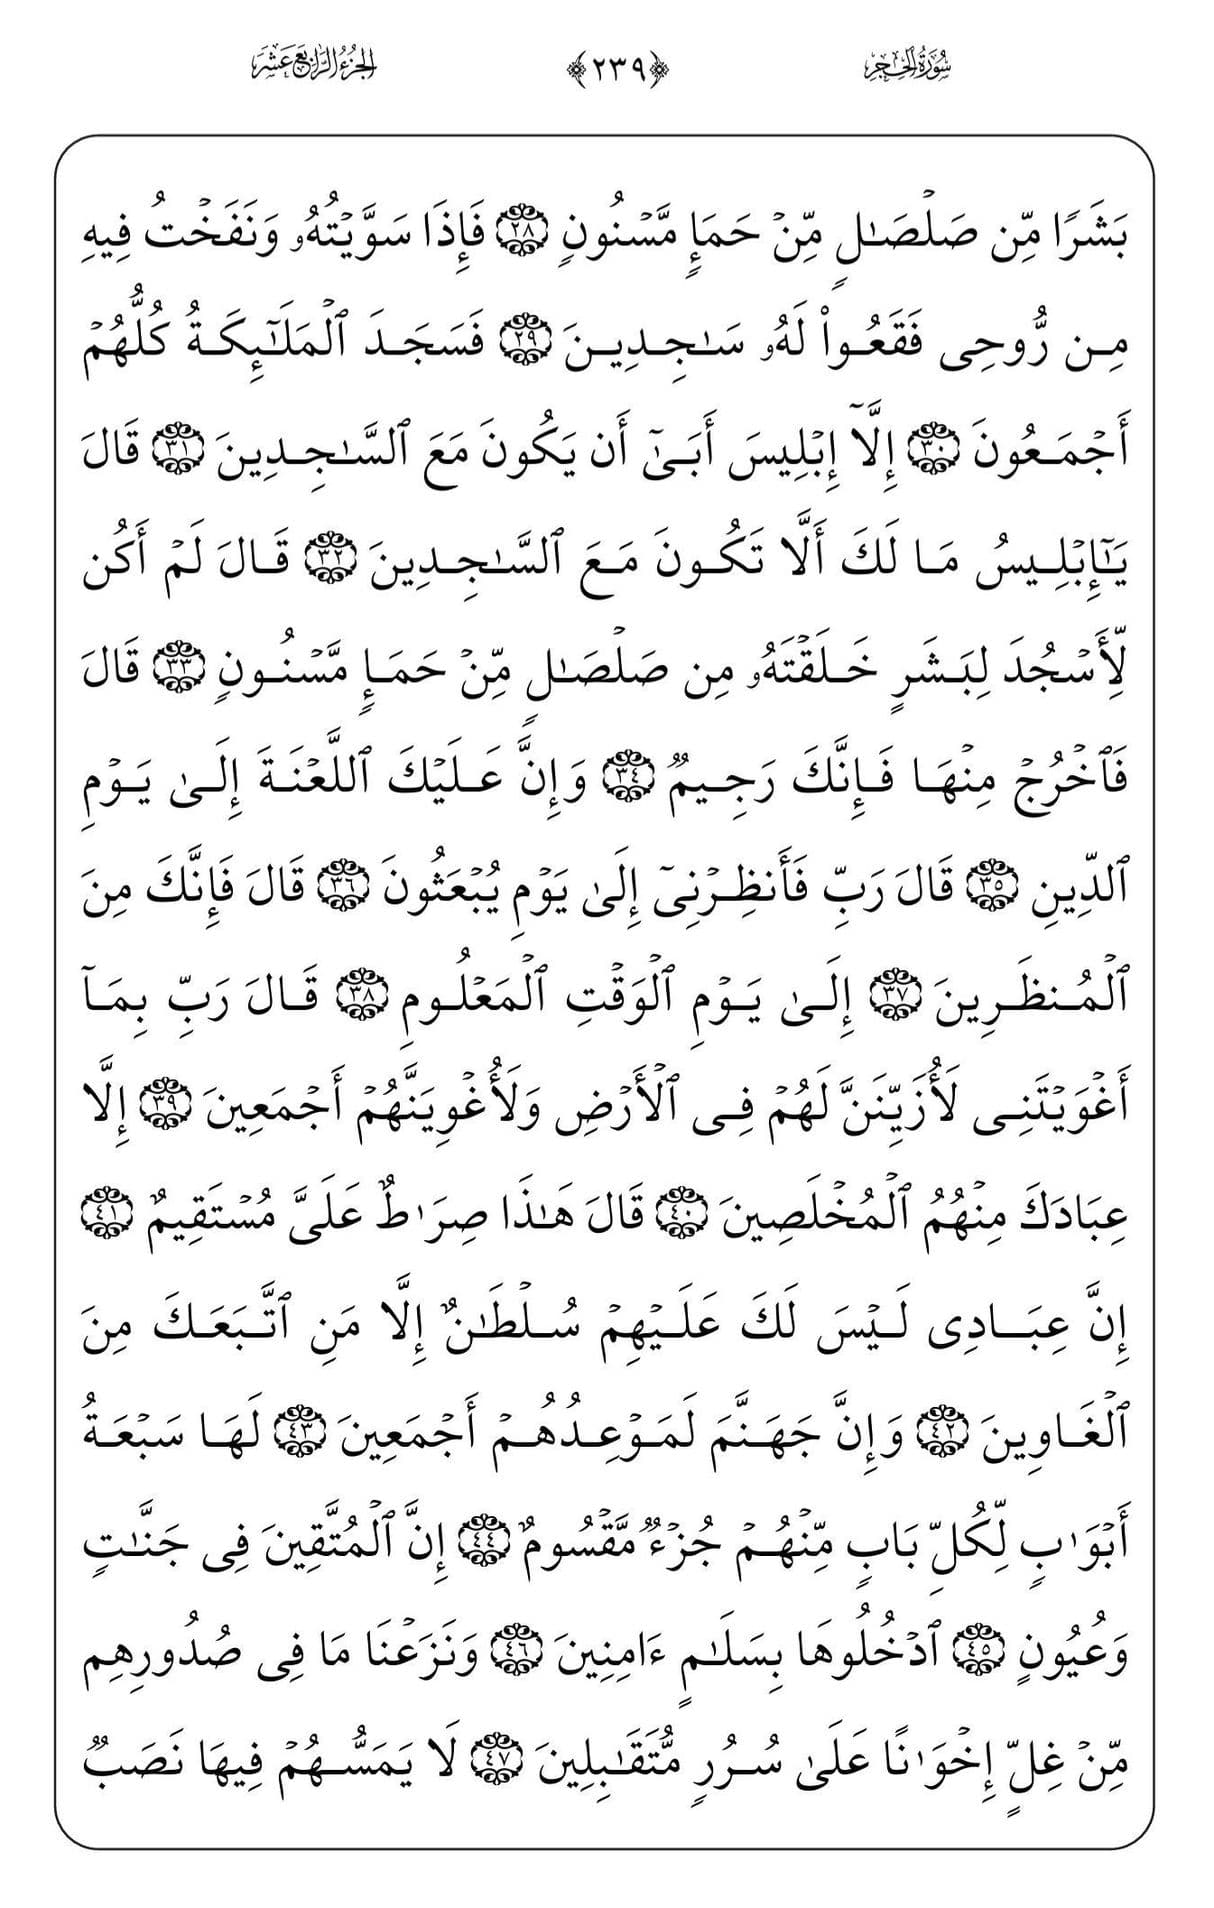 سُورَةُ الحِجْرِ ﴿٢٣٩﴾ الجُزْءُ الرَّابِعَ عَشَرَ
بَشَرًا مِّن صَلۡصَٰلٍ مِّنۡ حَمَإٍ مَّسۡنُونٍ ٢٨ فَإِذَا سَوَّيۡتُهُۥ وَنَفَخۡتُ فِيهِ
مِن رُّوحِى فَقَعُوا۟ لَهُۥ سَٰجِدِينَ ٢٩ فَسَجَدَ ٱلۡمَلَٰٓئِكَةُ كُلُّهُمۡ
أَجۡمَعُونَ ٣٠ إِلَّآ إِبۡلِيسَ أَبَىٰٓ أَن يَكُونَ مَعَ ٱلسَّٰجِدِينَ ٣١ قَالَ
يَٰٓإِبۡلِيسُ مَا لَكَ أَلَّا تَكُونَ مَعَ ٱلسَّٰجِدِينَ ٣٢ قَالَ لَمۡ أَكُن
لِّأَسۡجُدَ لِبَشَرٍ خَلَقۡتَهُۥ مِن صَلۡصَٰلٍ مِّنۡ حَمَإٍ مَّسۡنُونٍ ٣٣ قَالَ
فَٱخۡرُجۡ مِنۡهَا فَإِنَّكَ رَجِيمٌ ٣٤ وَإِنَّ عَلَيۡكَ ٱللَّعۡنَةَ إِلَىٰ يَوۡمِ
ٱلدِّينِ ٣٥ قَالَ رَبِّ فَأَنظِرۡنِىٓ إِلَىٰ يَوۡمِ يُبۡعَثُونَ ٣٦ قَالَ فَإِنَّكَ مِنَ
ٱلۡمُنظَرِينَ ٣٧ إِلَىٰ يَوۡمِ ٱلۡوَقۡتِ ٱلۡمَعۡلُومِ ٣٨ قَالَ رَبِّ بِمَآ
أَغۡوَيۡتَنِى لَأُزَيِّنَنَّ لَهُمۡ فِى ٱلۡأَرۡضِ وَلَأُغۡوِيَنَّهُمۡ أَجۡمَعِينَ ٣٩ إِلَّا
عِبَادَكَ مِنۡهُمُ ٱلۡمُخۡلَصِينَ ٤٠ قَالَ هَٰذَا صِرَٰطٌ عَلَىَّ مُسۡتَقِيمٌ ٤١
إِنَّ عِبَادِى لَيۡسَ لَكَ عَلَيۡهِمۡ سُلۡطَٰنٌ إِلَّا مَنِ ٱتَّبَعَكَ مِنَ
ٱلۡغَاوِينَ ٤٢ وَإِنَّ جَهَنَّمَ لَمَوۡعِدُهُمۡ أَجۡمَعِينَ ٤٣ لَهَا سَبۡعَةُ
أَبۡوَٰبٍ لِّكُلِّ بَابٍ مِّنۡهُمۡ جُزۡءٌ مَّقۡسُومٌ ٤٤ إِنَّ ٱلۡمُتَّقِينَ فِى جَنَّٰتٍ
وَعُيُونٍ ٤٥ ٱدۡخُلُوهَا بِسَلَٰمٍ ءَامِنِينَ ٤٦ وَنَزَعۡنَا مَا فِى صُدُورِهِم
مِّنۡ غِلٍّ إِخۡوَٰنًا عَلَىٰ سُرُرٍ مُّتَقَٰبِلِينَ ٤٧ لَا يَمَسُّهُمۡ فِيهَا نَصَبٌ